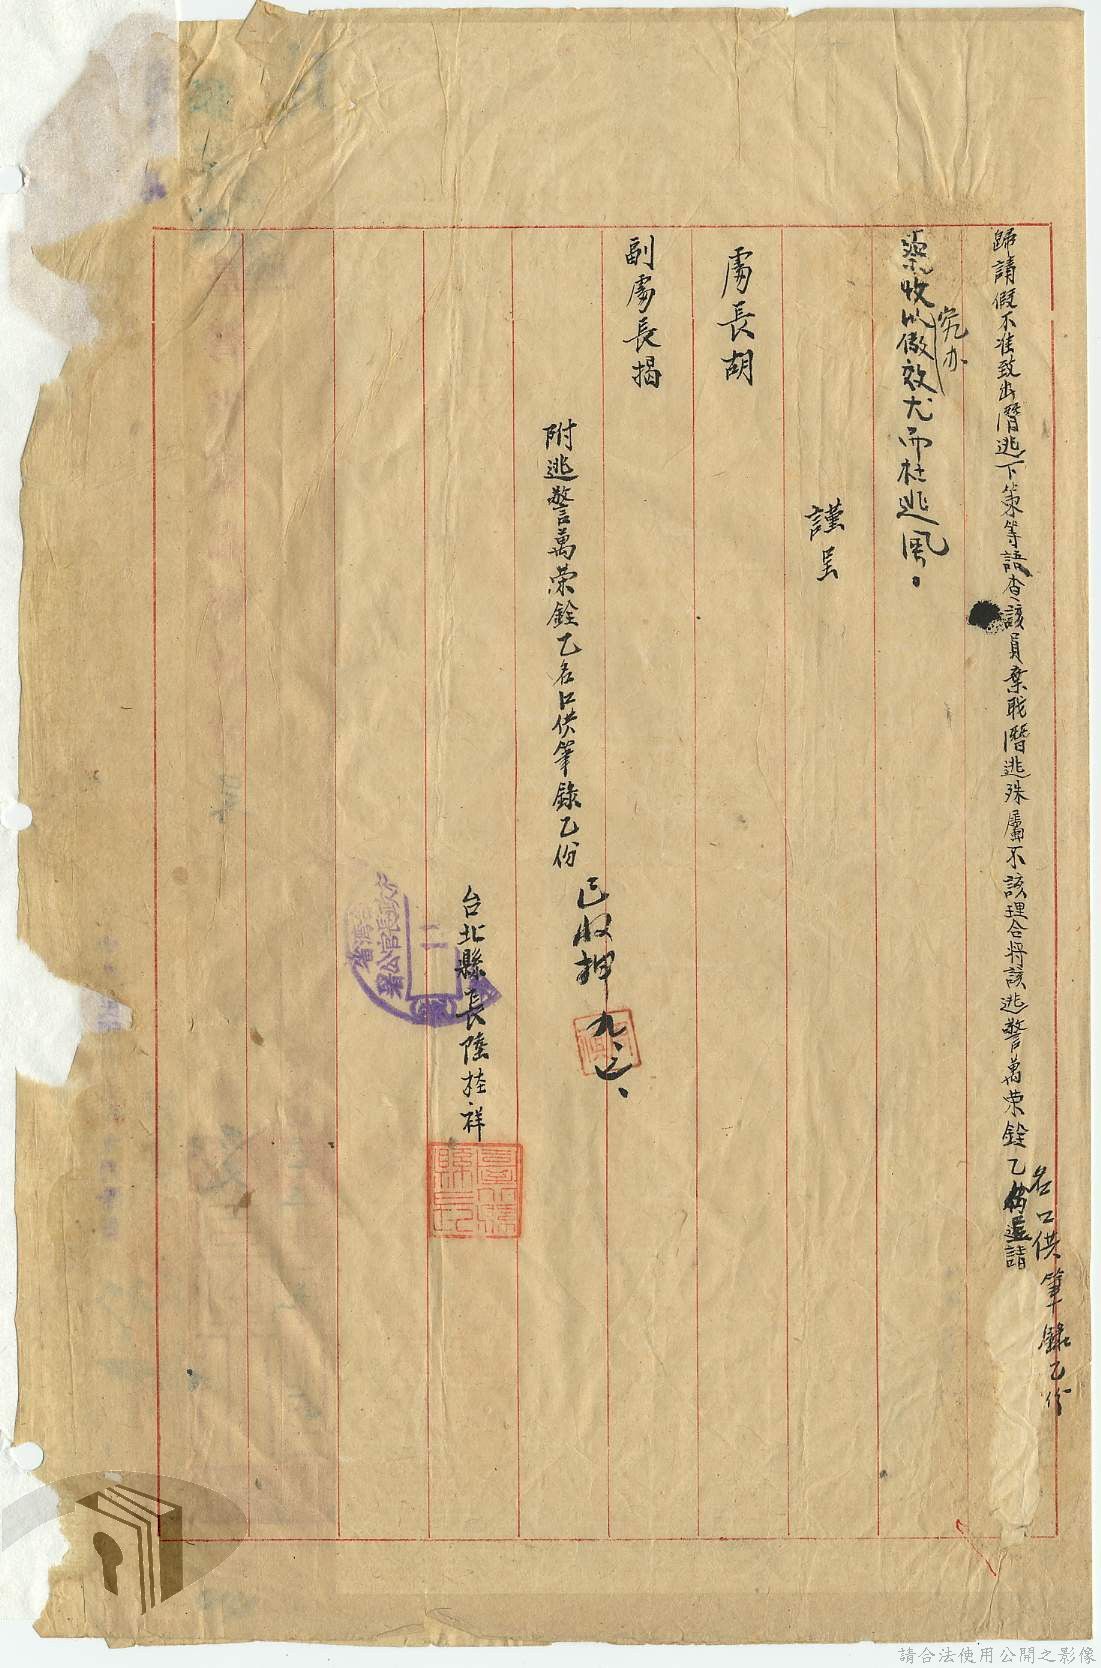 歸請假不准致出潛逃下策等語查該員棄職潛逃殊屬不該理合將該逃警萬榮銓乙名口供筆錄乙份
請
鑒收究办以儆效尤而杜逃風。
謹呈
處長胡
副處長揭
附逃警萬榮銓乙名口供筆錄乙份
已收押
台北縣長陸桂祥
請合法使用公開之影像